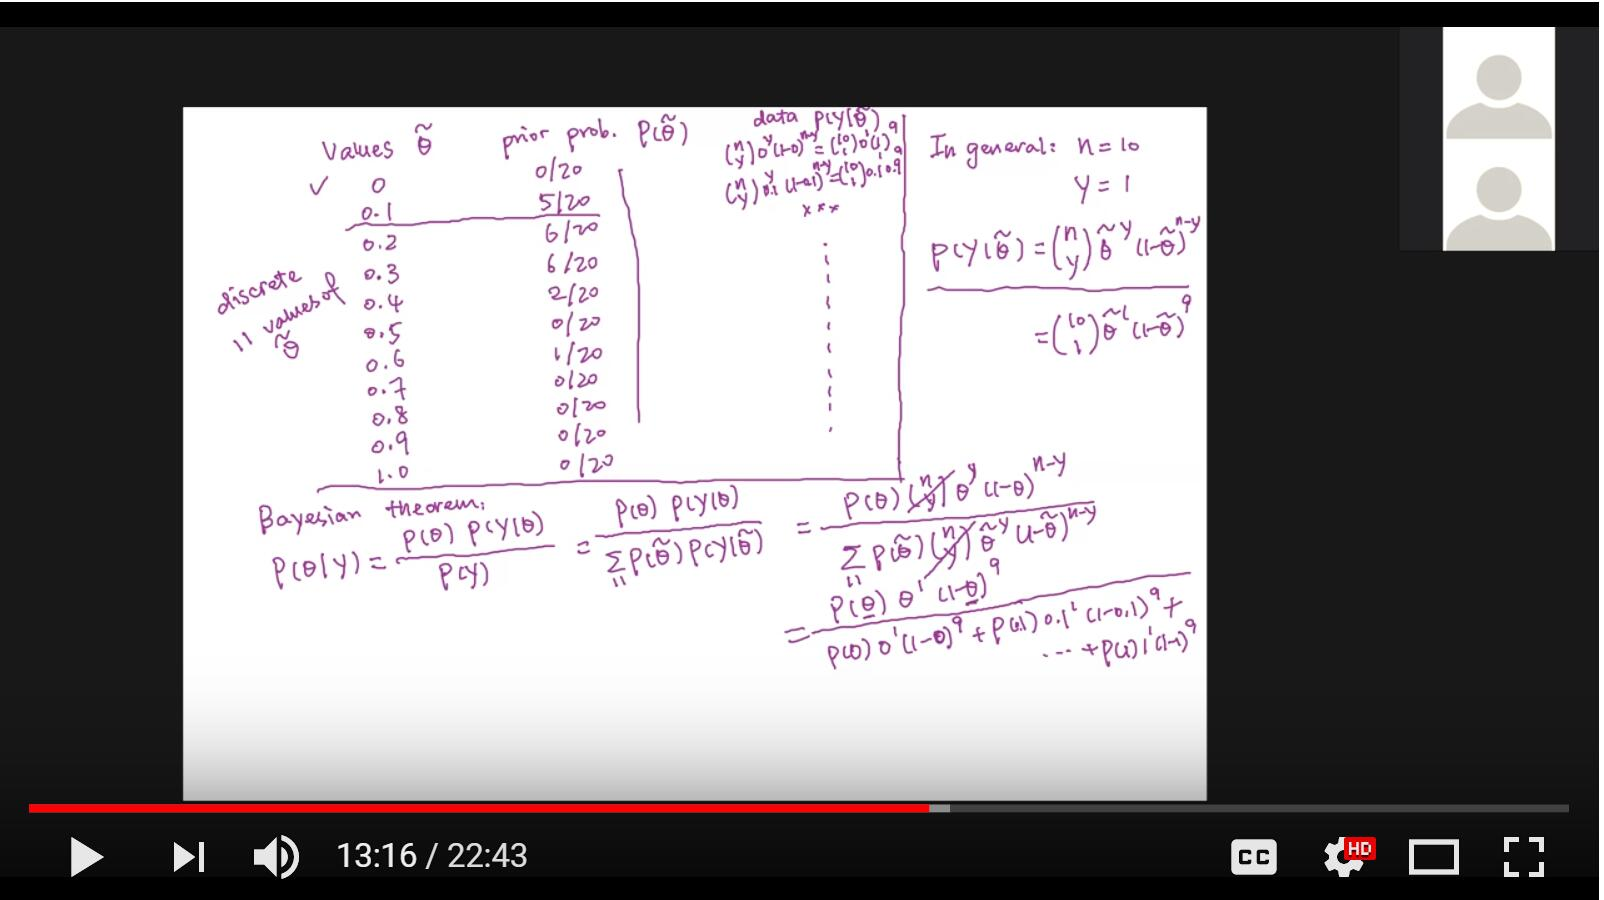 Values θ̃ prior prob. P(θ̃) data P(Y|θ̃)
✓ 0 0/20 (n y) 0^y (1-0)^n-y = (10 1) 0^1 (1)^9
0.1 5/20 (n y) 0.1^y (1-0.1)^n-y = (10 1) 0.1^1 0.9^9
0.2 6/20
0.3 6/20
0.4 2/20
0.5 0/20
0.6 1/20
0.7 0/20
0.8 0/20
0.9 0/20
1.0 0/20
discrete
11 values of
θ̃
In general: n = 10
Y = 1
P(Y|θ̃) = (n y) θ̃^y (1-θ̃)^n-y
= (10 1) θ̃^1 (1-θ̃)^9
Bayesian theorem:
P(θ|y) = P(θ) P(Y|θ) / P(Y) = P(θ) P(Y|θ) / Σ11 P(θ̃) P(Y|θ̃) = P(θ) (n y) θ^y (1-θ)^n-y / Σ11 P(θ̃) (n y) θ̃^y (1-θ̃)^n-y
= P(θ) θ^1 (1-θ)^9 / P(0) 0^1 (1-0)^9 + P(0.1) 0.1^1 (1-0.1)^9 +
... + P(1) 1^1 (1-1)^9
13:16 / 22:43
CC
HD